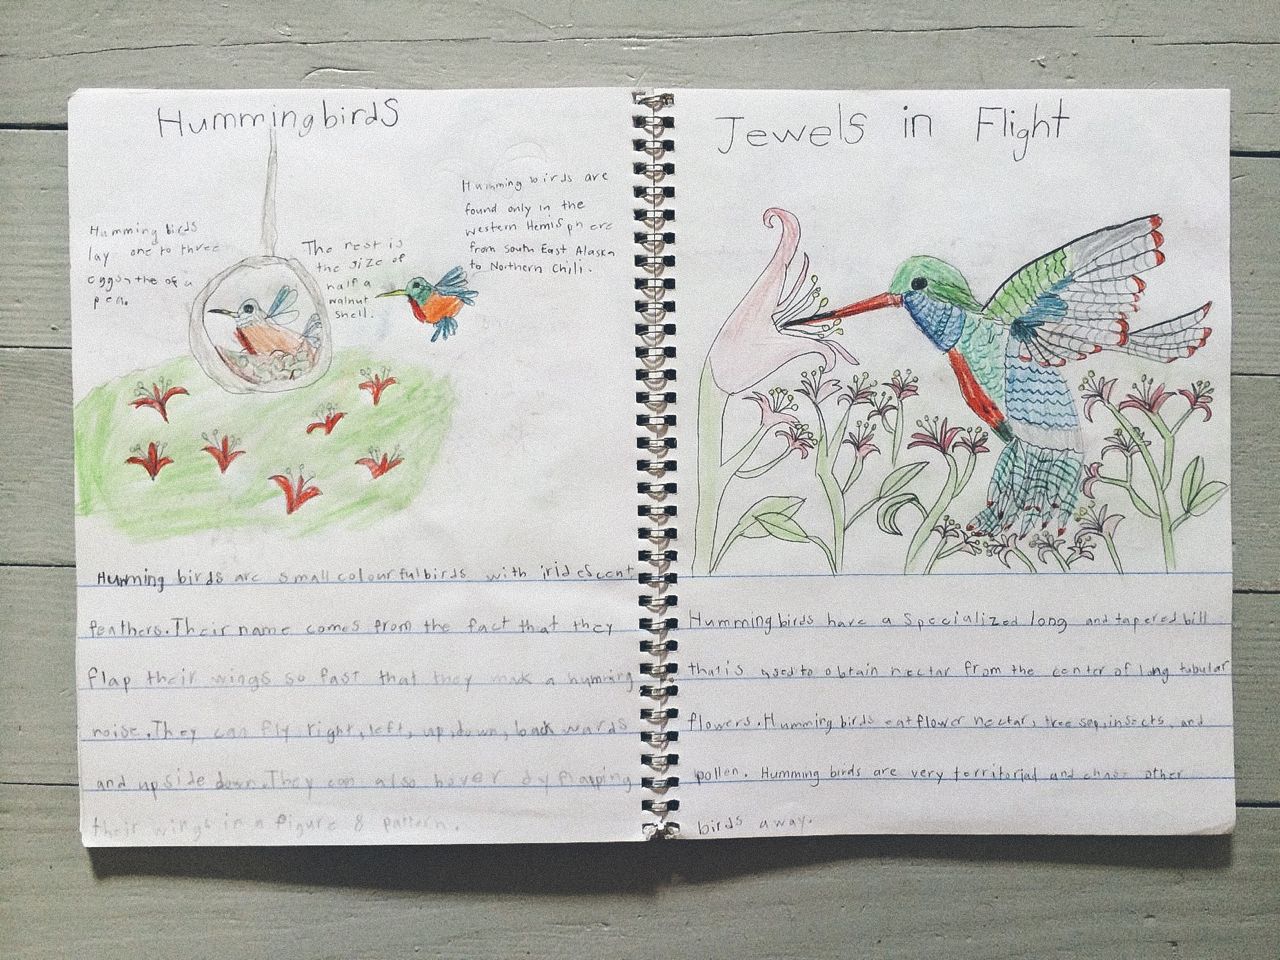 Hummingbirds
Humming birds
lay one to three
eggs on the of a
pea.
The nest is
the size of
half a
walnut
shell.
Humming birds are
found only in the
western Hemisphere
from South East Alaska
to Northern Chili.
Humming birds are small colourful birds with iridescent
feathers. Their name comes from the fact that they
flap their wings so fast that they mak a humming
noise. They can fly right, left, up, down, back wards
and upside down. They can also hover by flapping
their wings in a figure 8 pattern.
Jewels in Flight
Humming birds have a specialized long and tapered bill
that is used to obtain nectar from the center of long tubular
flowers. Humming birds eat flower nectar, tree sap, insects, and
pollen. Humming birds are very territorial and chase other
birds away.